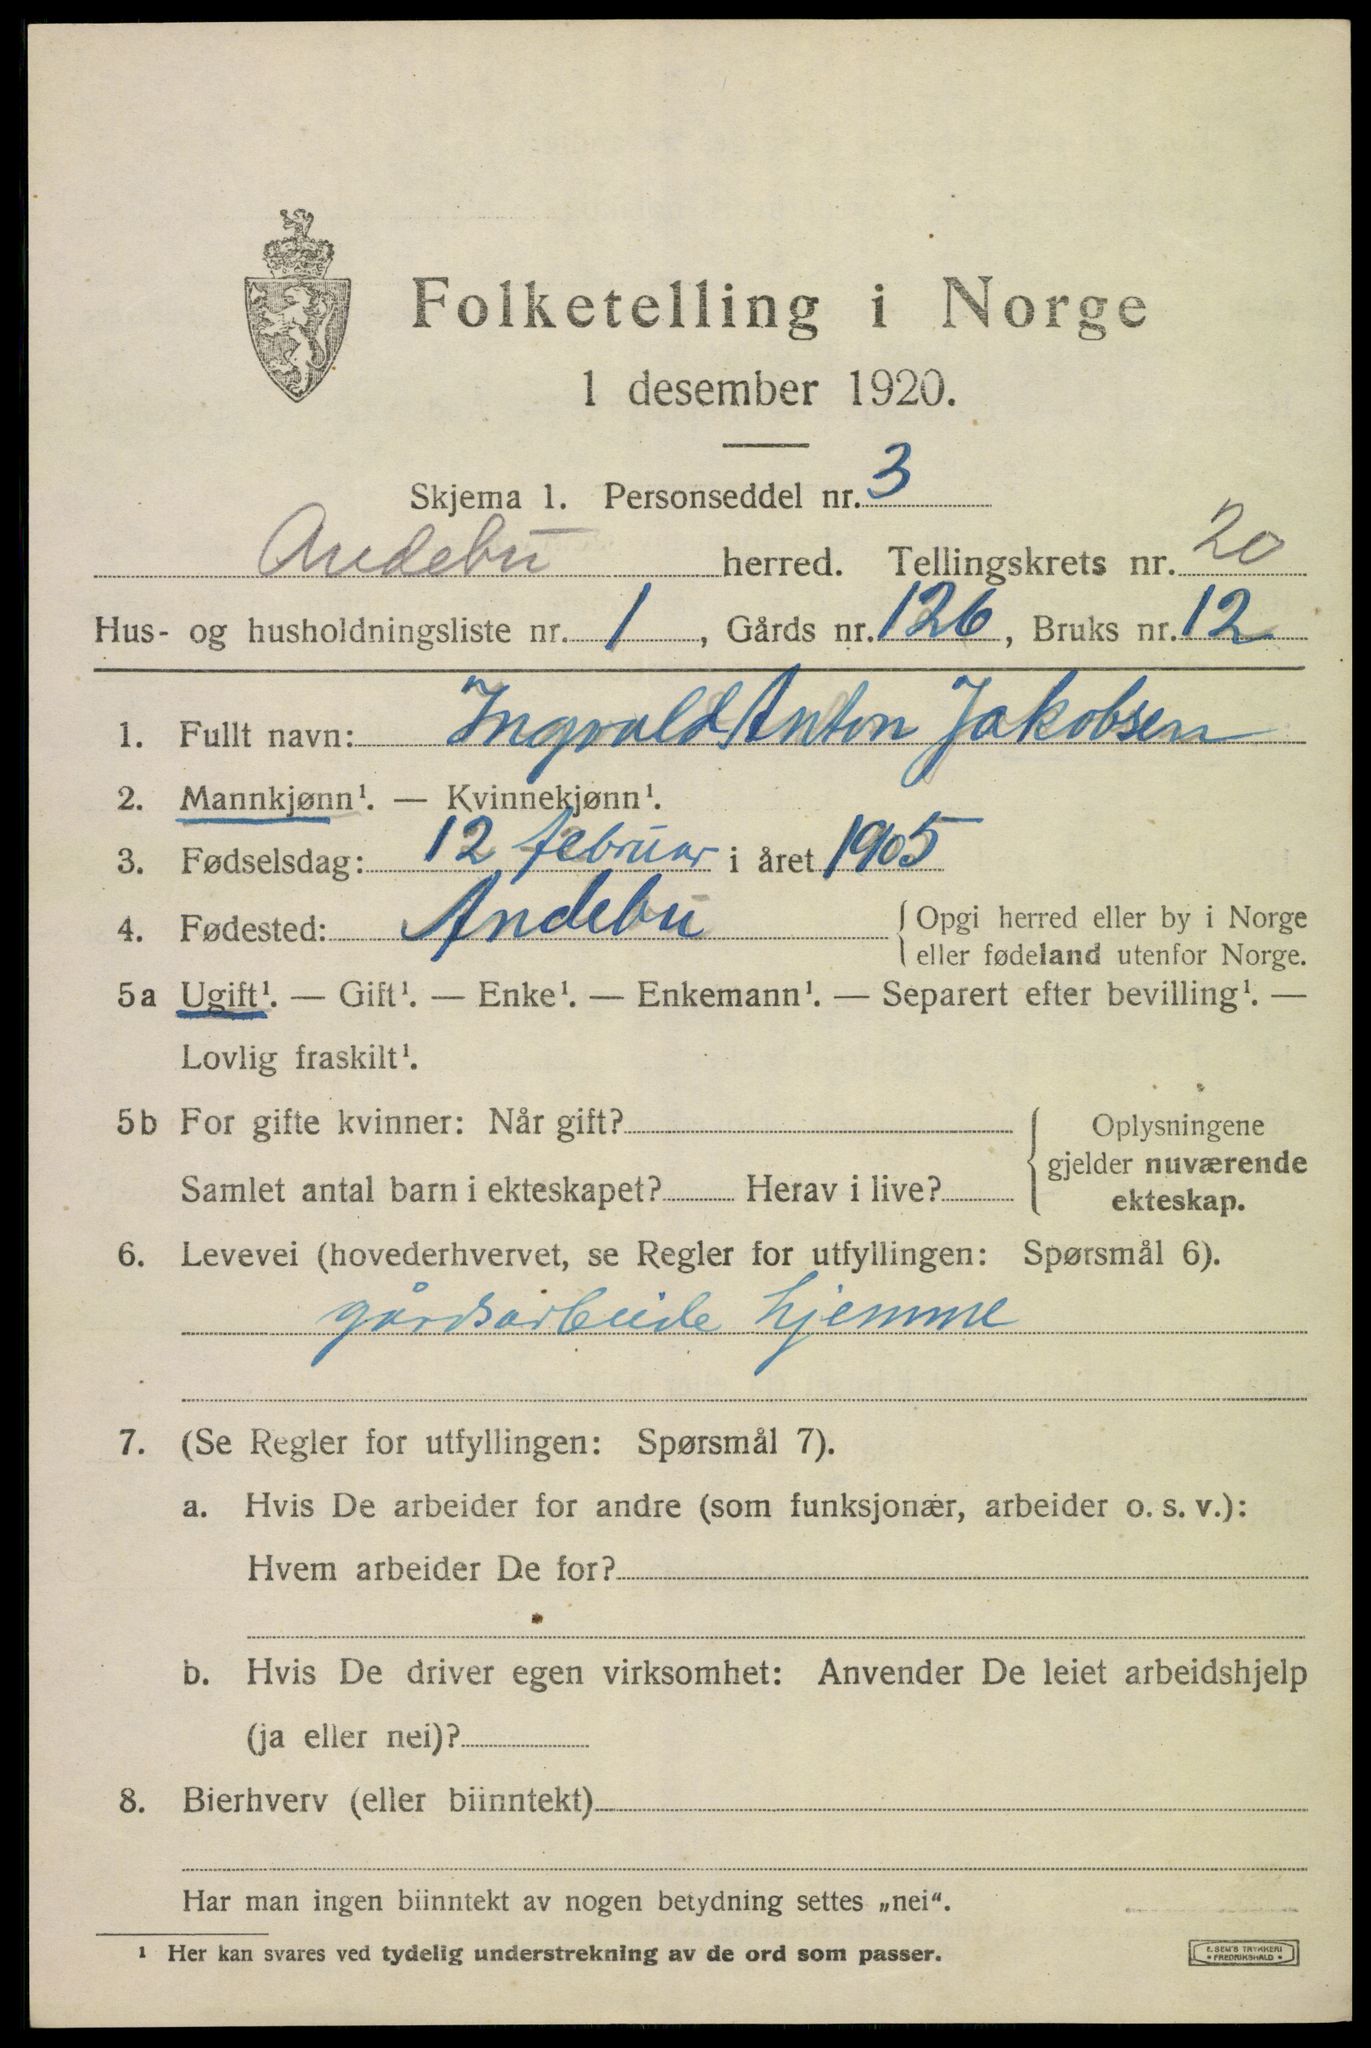 Folketelling i Norge
1 desember 1920.
Skjema 1. Personseddel nr. 3
Andebu herred. Tellingskrets nr. 20
Hus- og husholdningsliste nr. 1, Gårds nr. 126, Bruks nr. 12
1. Fullt navn: Ingvald Anton Jakobsen
2. Mannkjønn¹. — Kvinnekjønn¹.
3. Fødselsdag: 12 februar i året 1905
4. Fødested: Andebu { Opgi herred eller by i Norge
eller fødeland utenfor Norge.
5a Ugift¹. — Gift¹. — Enke¹. — Enkemann¹. — Separert efter bevilling¹. —
Lovlig fraskilt¹.
5b For gifte kvinner: Når gift?
Samlet antal barn i ekteskapet? Herav i live?
{ Oplysningene
gjelder nuværende
ekteskap.
6. Levevei (hovederhvervet, se Regler for utfyllingen: Spørsmål 6).
gårdsarbeide hjemme
7. (Se Regler for utfyllingen: Spørsmål 7).
a. Hvis De arbeider for andre (som funksjonær, arbeider o. s. v.):
Hvem arbeider De for?
b. Hvis De driver egen virksomhet: Anvender De leiet arbeidshjelp
(ja eller nei)?
8. Bierhverv (eller biinntekt)
Har man ingen biinntekt av nogen betydning settes „nei“.
¹ Her kan svares ved tydelig understrekning av de ord som passer.
E. SEM'S TRYKKERI
• FREDRIKSHALD •